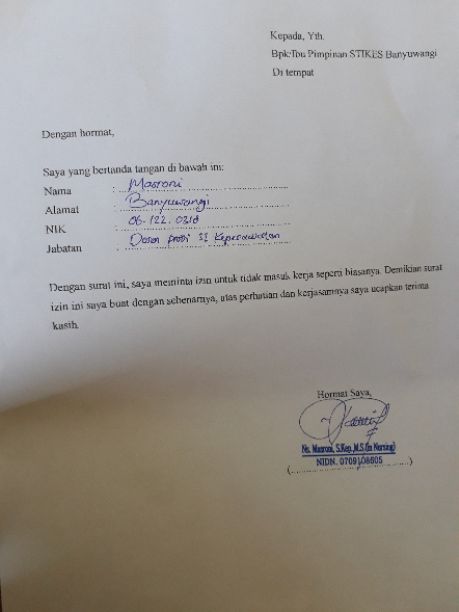 Kepada, Yth.
Bpk/Ibu Pimpinan STIKES Banyuwangi
Di tempat
Dengan hormat,
Saya yang bertanda tangan di bawah ini:
Nama : Masroni
Alamat : Banyuwangi
NIK : 06.122.0218
Jabatan : Dosen prodi S1 Keperawatan
Dengan surat ini, saya meminta izin untuk tidak masuk kerja seperti biasanya. Demikian surat
izin ini saya buat dengan sebenarnya, atas perhatian dan kerjasamnya saya ucapkan terima
kasih.
Hormat Saya,
Ns. Masroni, S.Kep.,M.S.(in Nursing)
NIDN. 0709108605
(..............................)